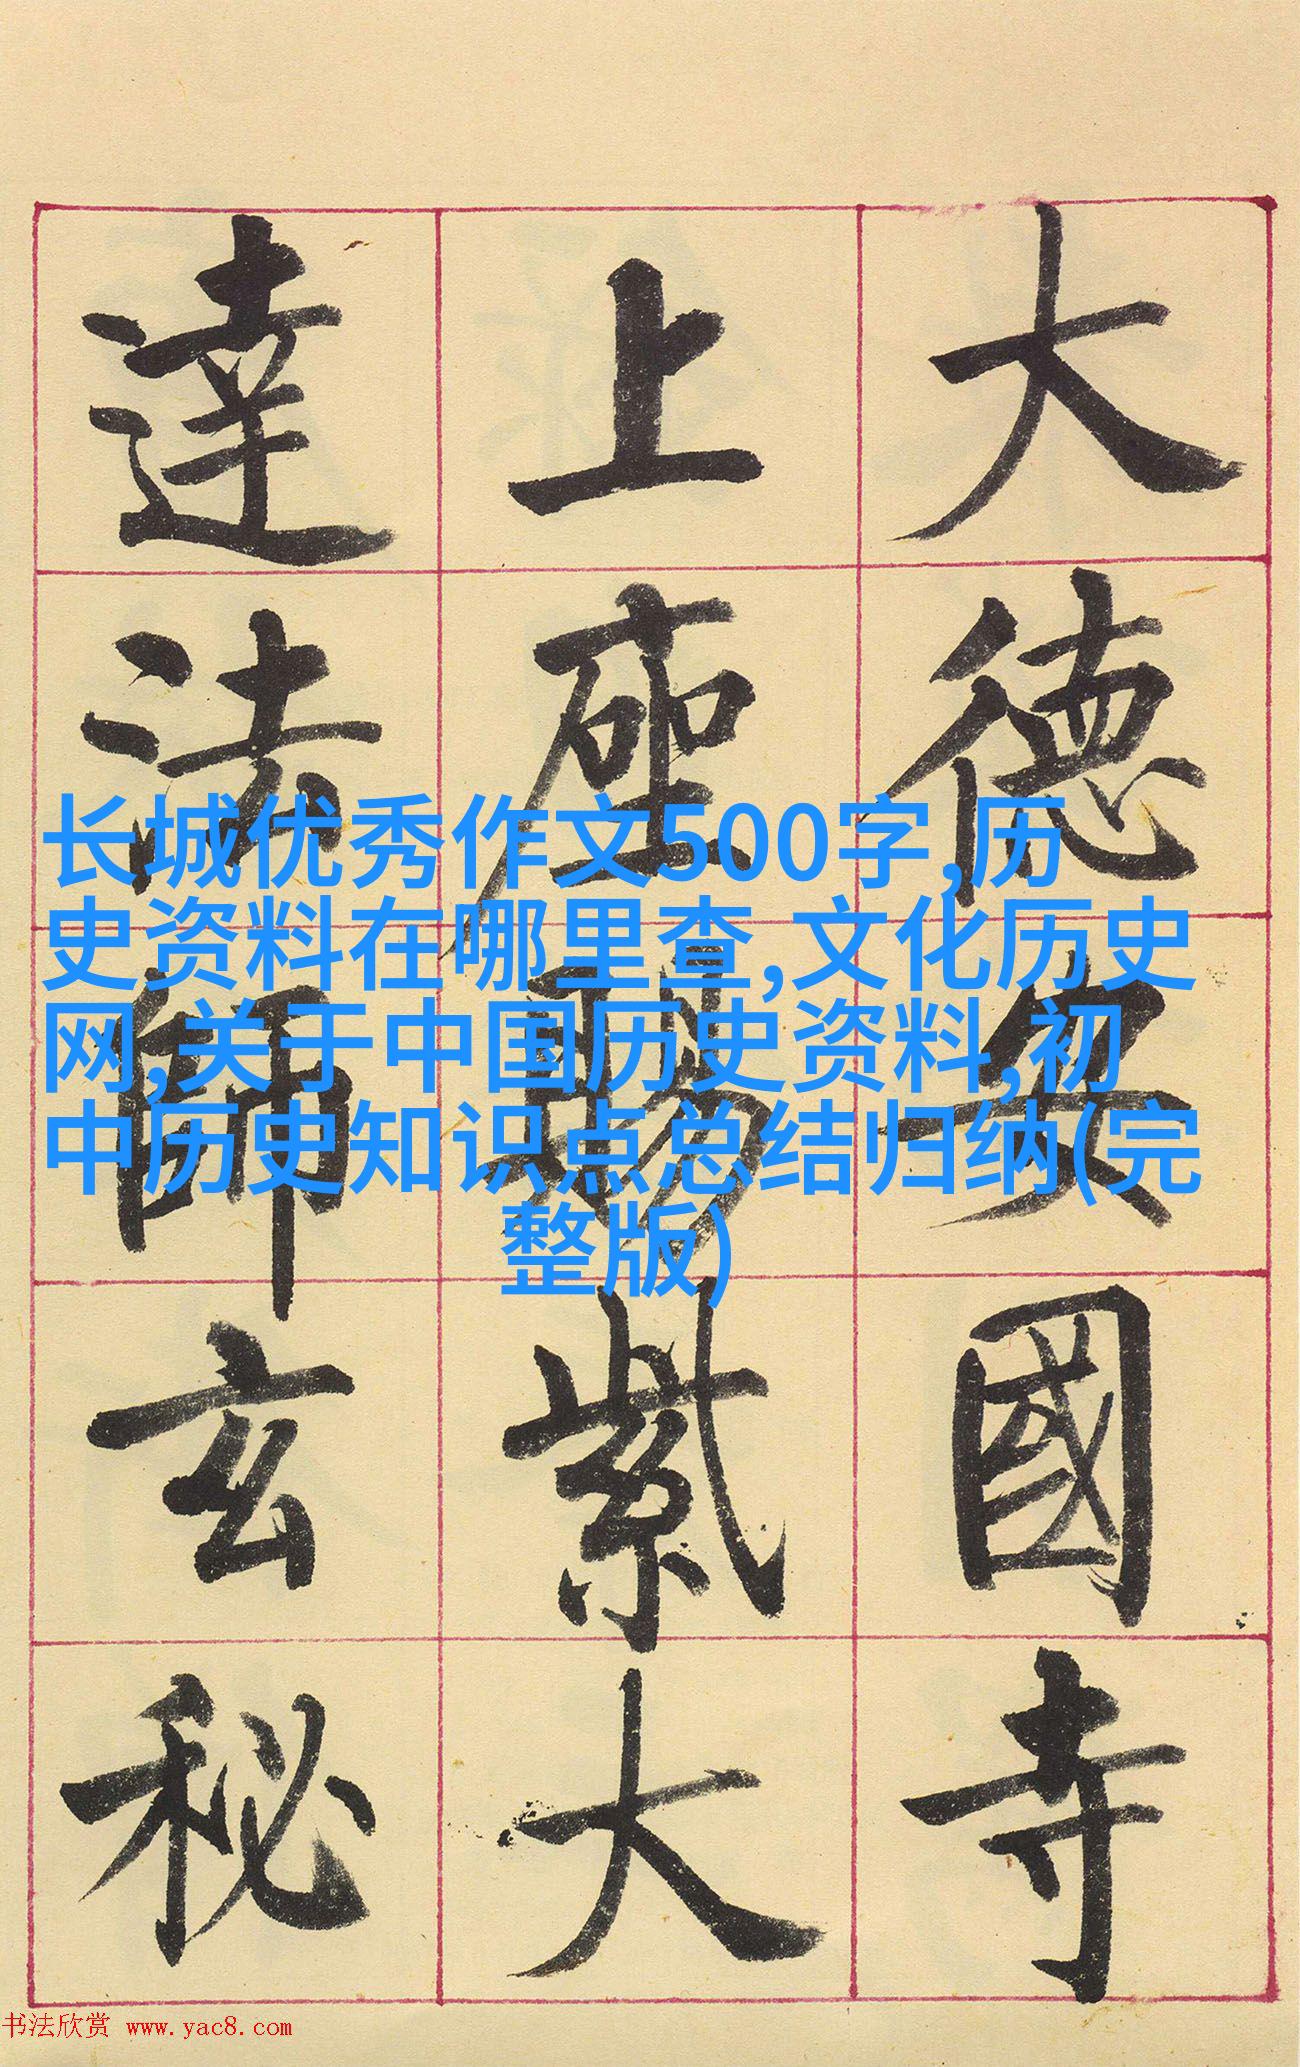 大德安國寺
上座賜紫大
達法師玄秘
长城优秀作文500字,历
史资料在哪里查,文化历史
网,关于中国历史资料,初
中历史知识点总结归纳(完
整版)
书法欣赏 www.yac8.com